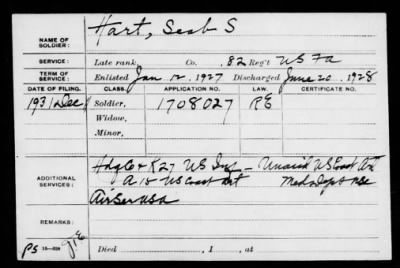 Hart, Seab S
NAME OF SOLDIER:
SERVICE: Late rank, Co. , 82 Reg't US Fa
TERM OF SERVICE: Enlisted Jan 12, 1927 Discharged June 20, 1928
DATE OF FILING. CLASS. APPLICATION NO. LAW. CERTIFICATE NO.
1931 Dec Soldier, 1708027 PE
Widow,
Minor,
ADDITIONAL SERVICES: Hdq Co & K 27 US Inf — Unassd US Coast Art
A 15 US Coast Art Med Dept USA
Air Ser USA
REMARKS:
PS
Died , 1 , at